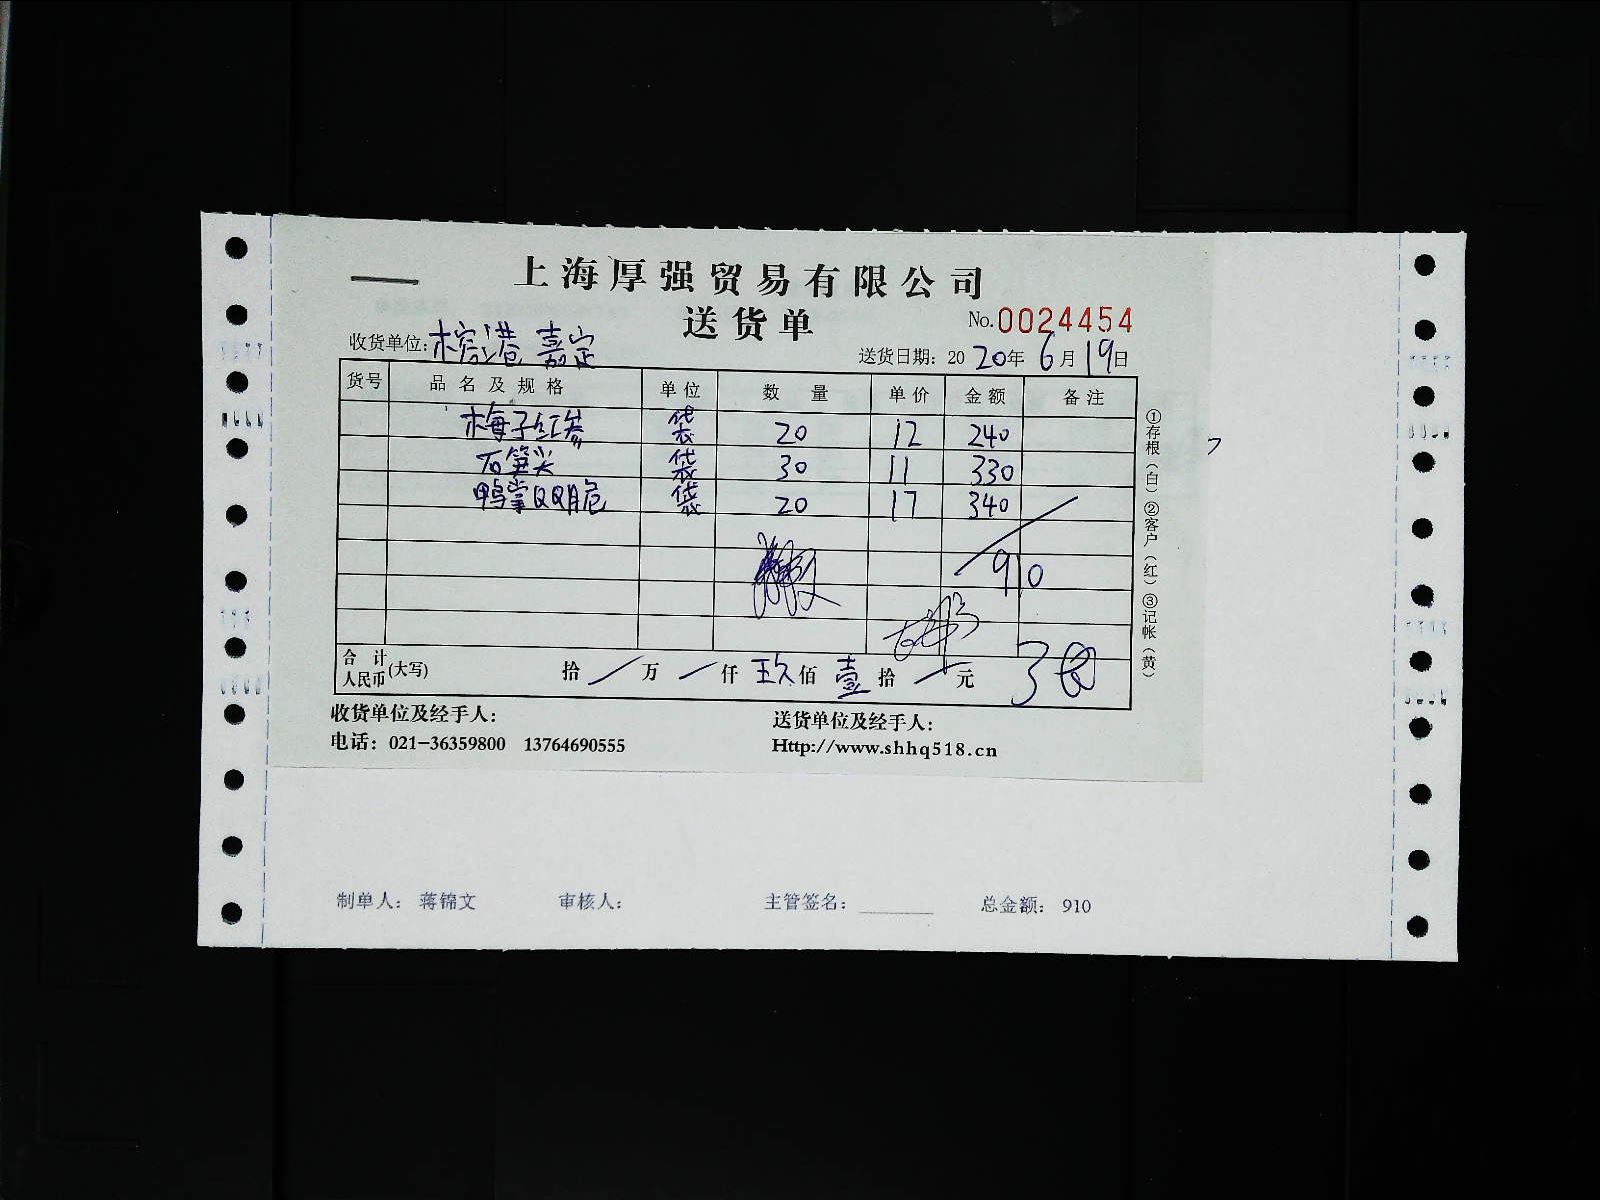 上海厚强贸易有限公司
送货单
No.0024454
收货单位:榕港 嘉定
送货日期: 2020年6月19日
货号 品名及规格 单位 数量 单价 金额 备注
梅子红参 袋 20 12 240
石笋尖 袋 30 11 330
鸭掌QQ脆 袋 20 17 340
910
合计人民币(大写) 拾 / 万 / 仟 玖 佰 壹 拾 / 元
①存根(白)②客户(红)③记帐(黄)
收货单位及经手人:
送货单位及经手人:
电话: 021-36359800 13764690555
Http://www.shhq518.cn
制单人: 蒋锦文 审核人: 主管签名: ______ 总金额: 910